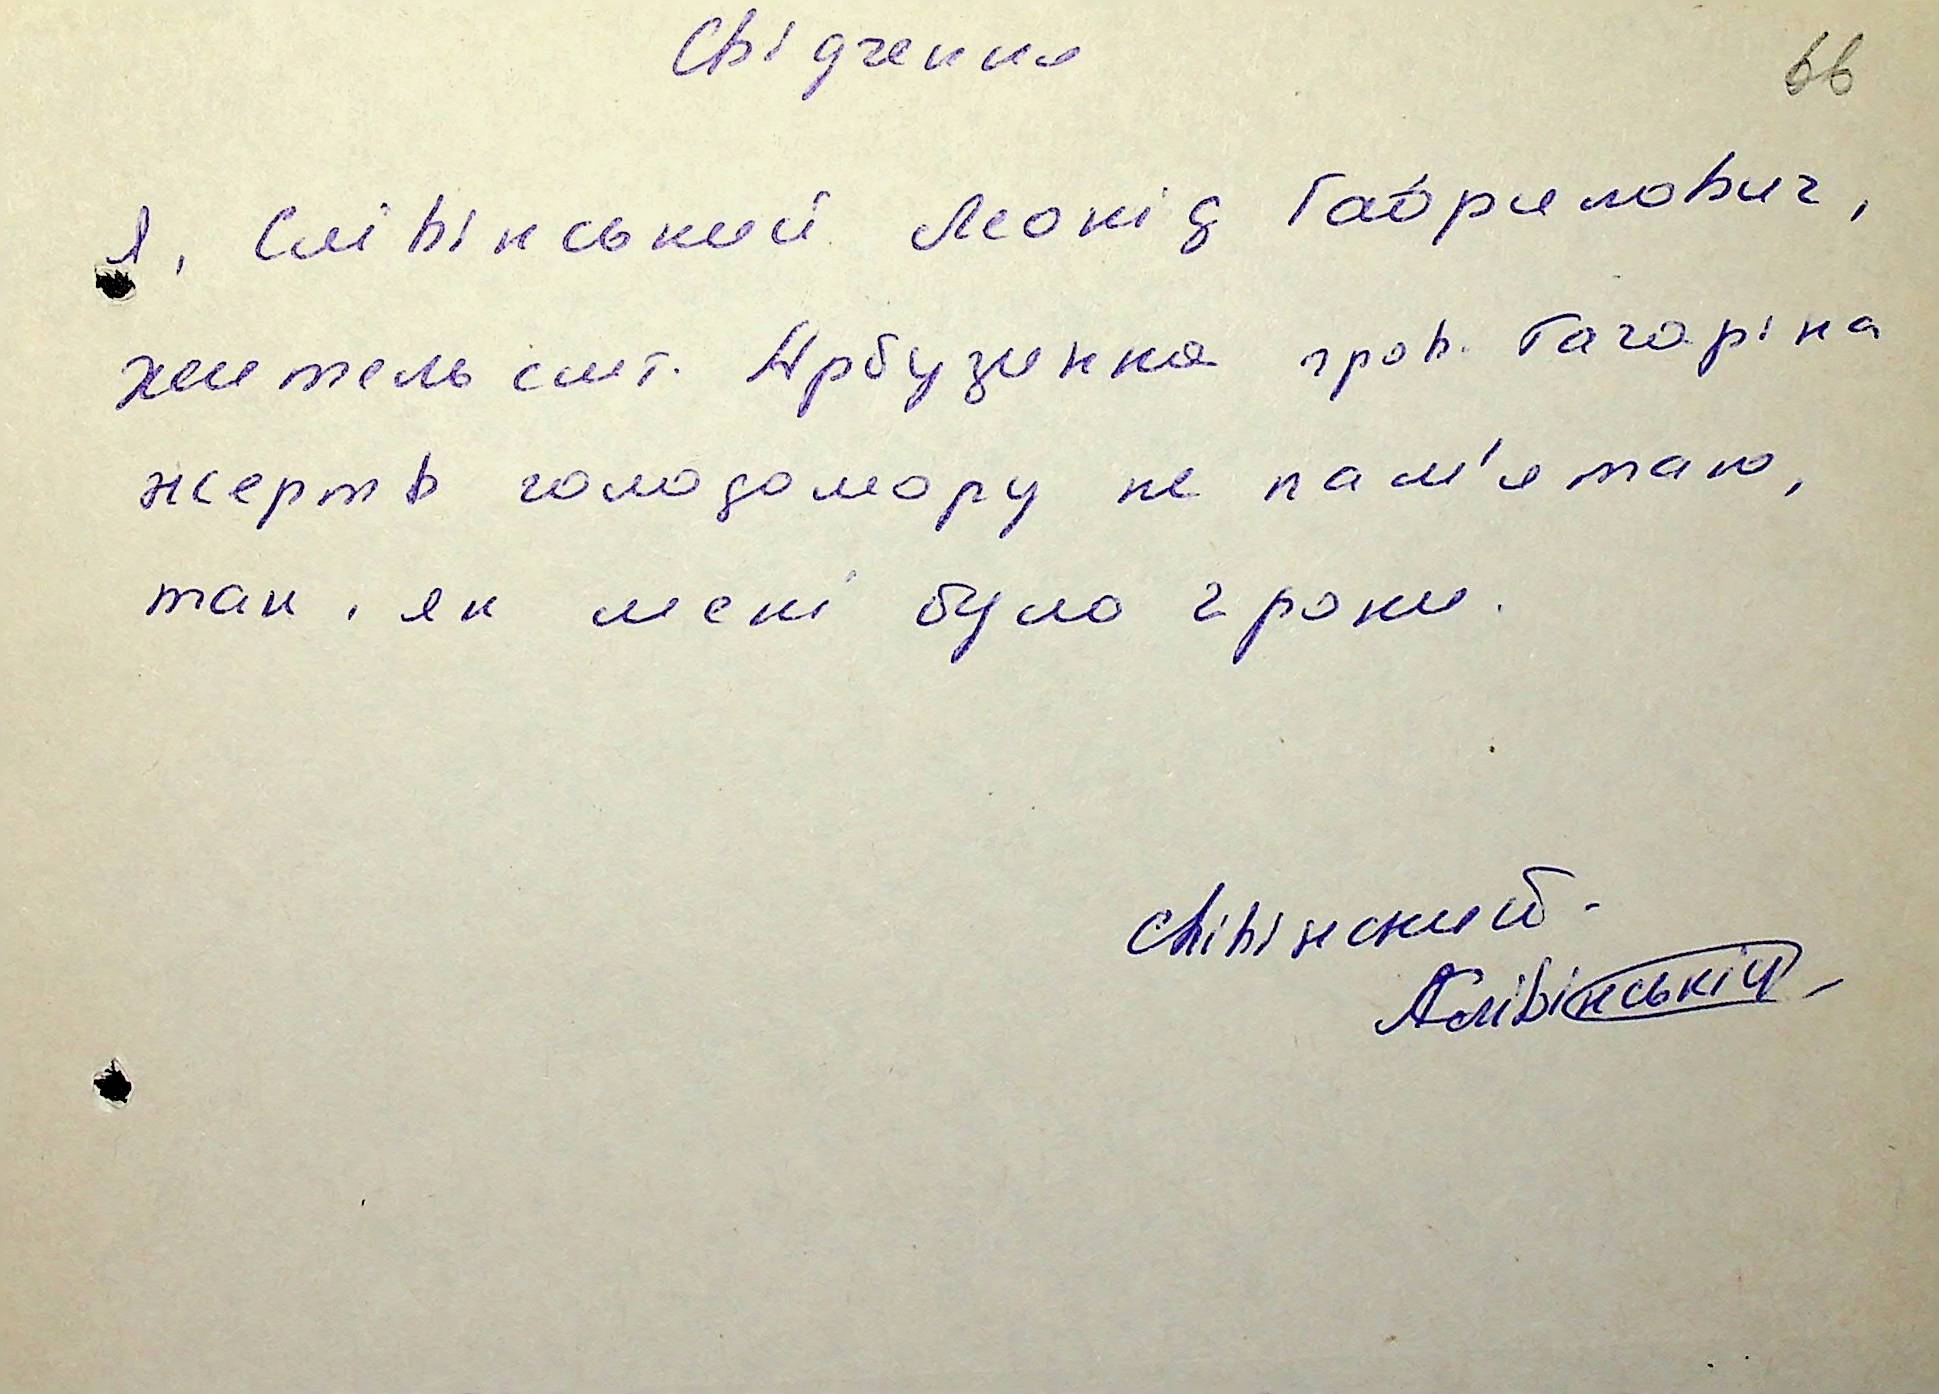 Свідчення
66
Я, Слівінський Леонід Гаврилович,
житель смт. Арбузинка пров. Гагаріна
жертв голодомору не пам'ятаю,
так, як мені було 2 роки.
Слівінский
Слівінській